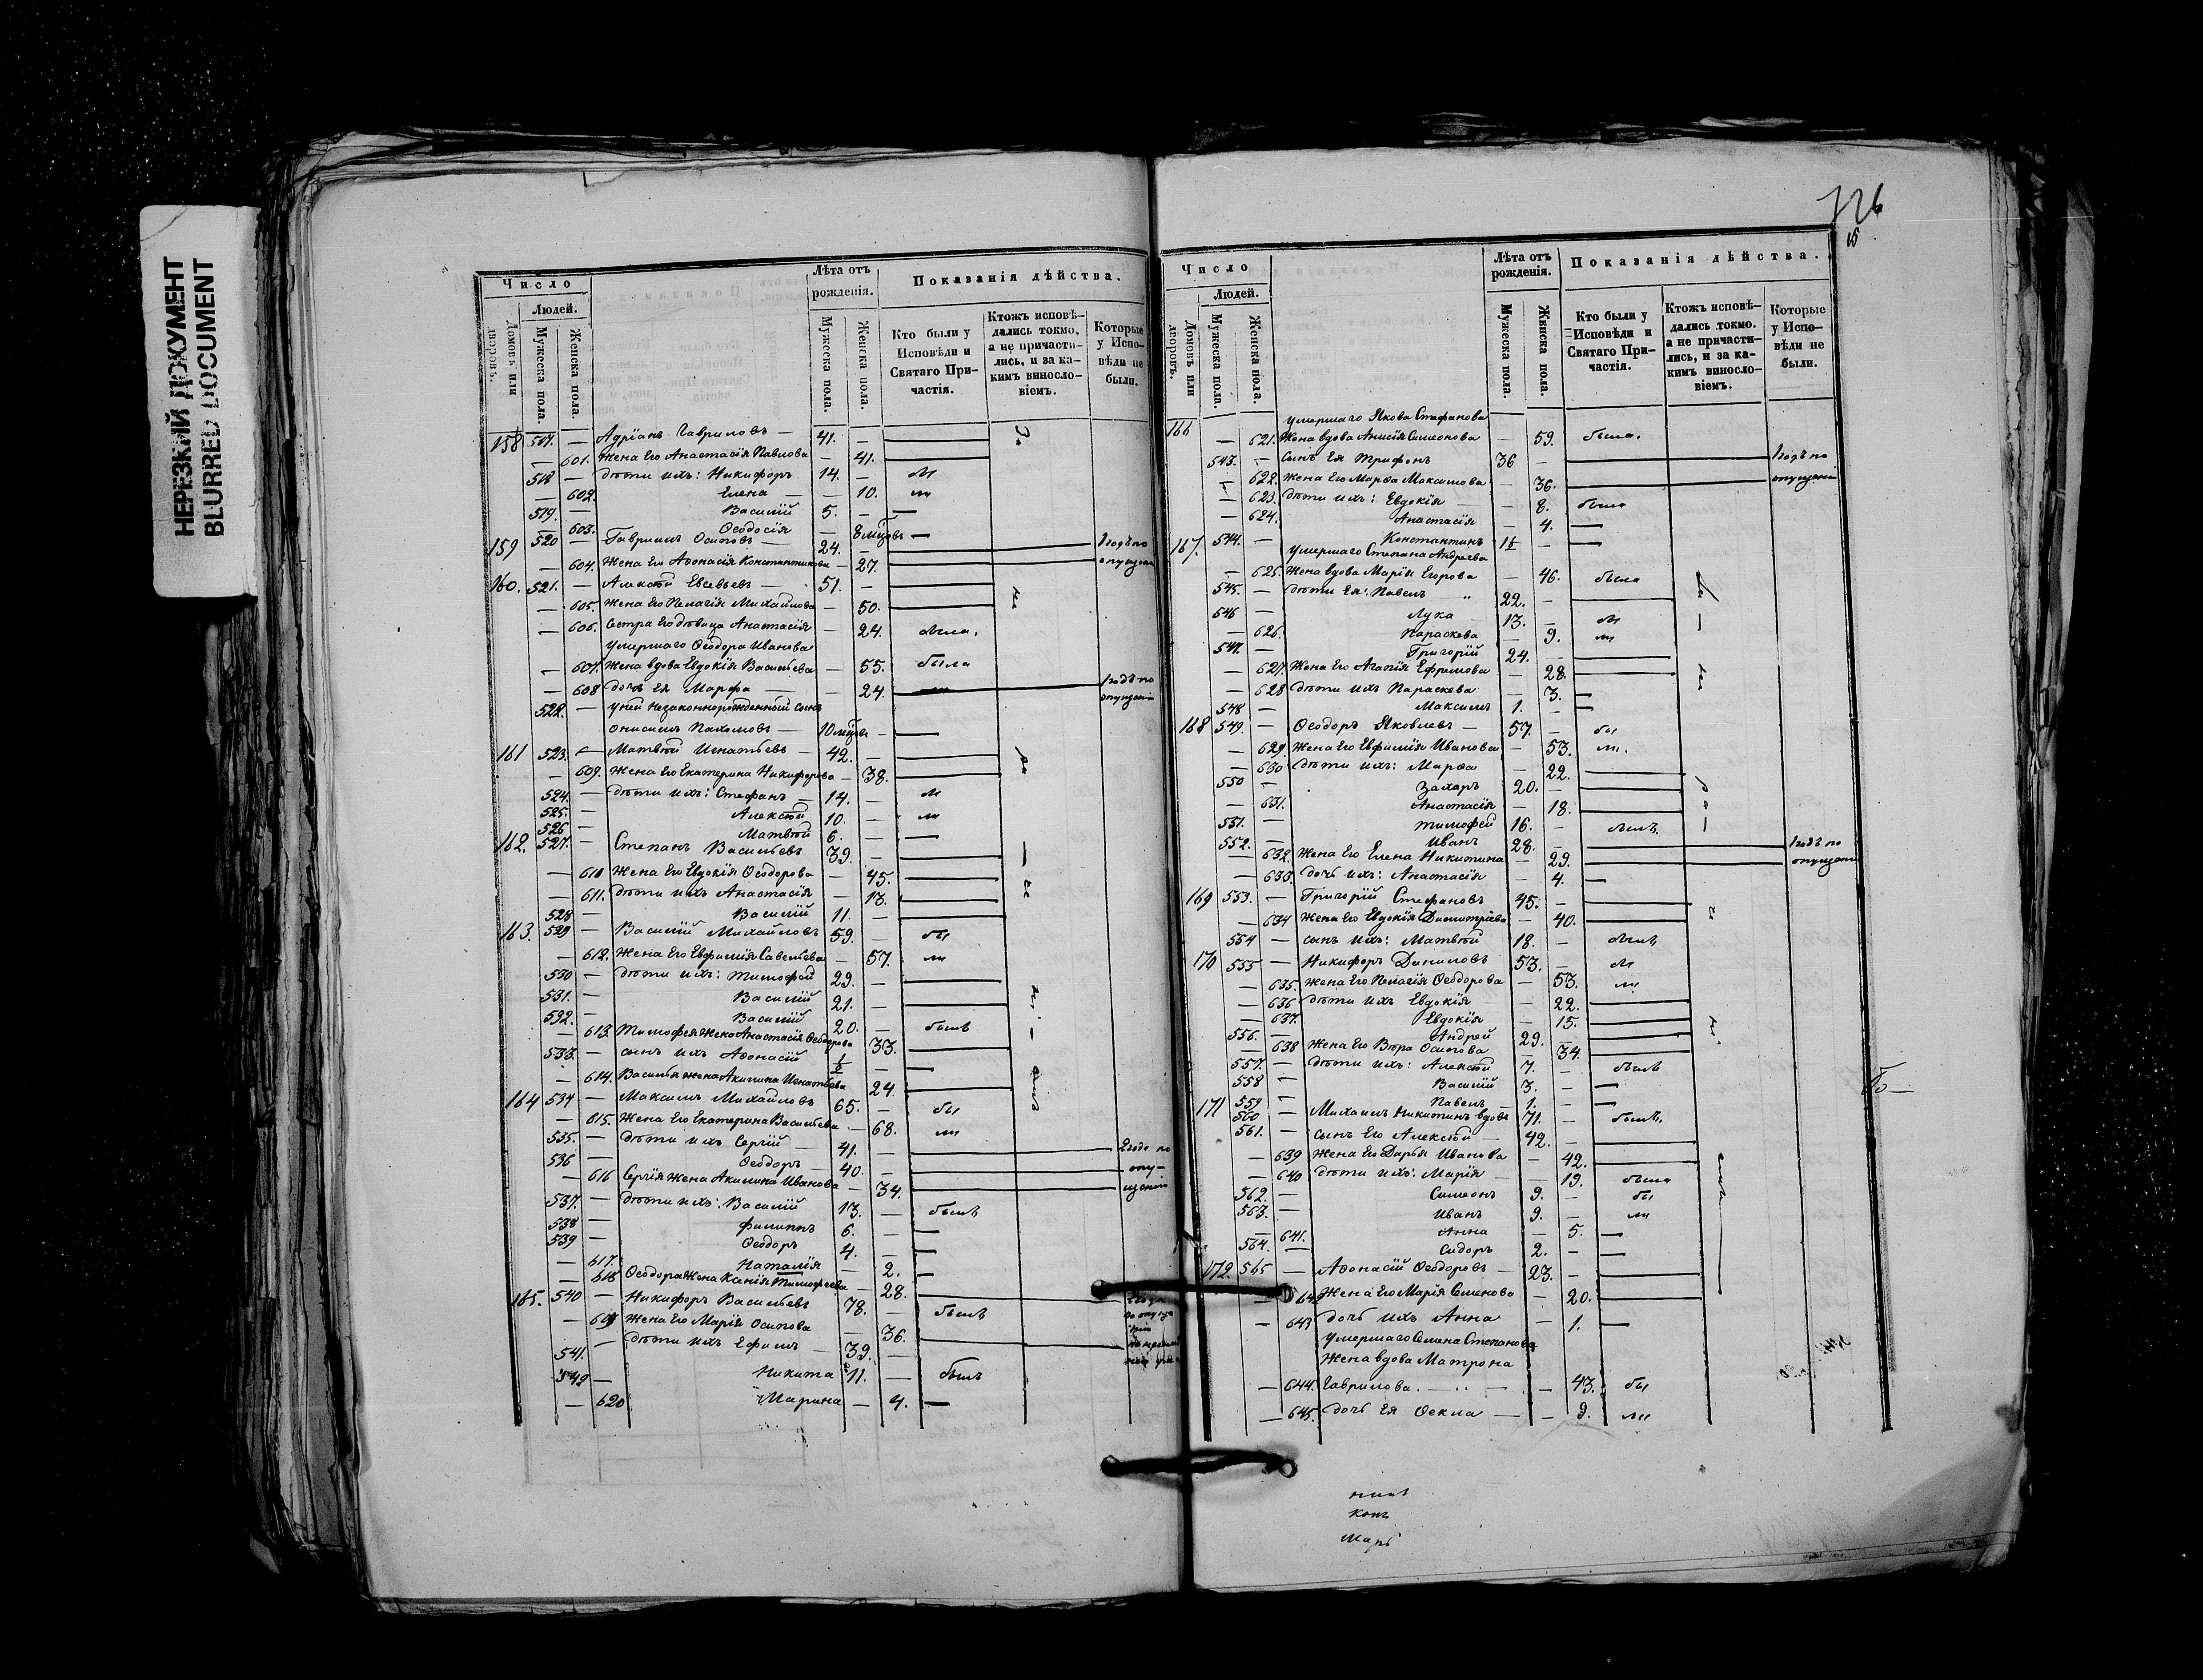 НЕРЕЗКИЙ ДОКУМЕНТ
BLURRED DOCUMENT
Число
Людей.
Домовъ или дворовъ.
Мужеска пола.
Женска пола.
Лѣта отъ рожденія.
Мужеска пола.
Женска пола.
Показанія дѣйства.
Кто были у Исповѣди и Святаго Причастія.
Ктожъ исповѣдались токмо, а не причастились, и за какимъ винословіемъ.
Которые у Исповѣди не были.
158 517. — Адріанъ Гавриловъ — 41. —
— 601. Жена Его Анастасія Павлова — 41.
518 — дѣти ихъ: Никифоръ 14. — бы
— 602. Елена — — 10. ли
519. — Василій 5. — —
— 603. Ѳеодосія — 8 мѣсцовъ —
159 520 — Гавриилъ Осиповъ — 24. — 1 годъ по
— 604. Жена Его Аѳонасія Константинова — 27. опущенію
160. 521. — Алексѣй Евсевьевъ — 51. —
— 605. Жена Его Пелагія Михайлова — 50.
— 606. Сестра Его дѣвица Анастасія — 24. была.
умершаго Ѳеодора Иванова
— 607. Жена вдова Евдокія Васильева — 55. была
— 608 дочь Ея Марфа — — 24. 1 годъ по опущенію
522. — у ней незаконнорожденный сынъ
Онисимъ Пахомовъ — 10 мѣсцовъ — —
161 523. — Матвѣй Игнатьевъ — 42. —
— 609. Жена Его Екатерина Никифорова — 38.
524. — дѣти ихъ: Стефанъ — 14. — бы
525. — Алексѣй 10. — ли
526 — Матвѣй 6. — —
162. 527. — Степанъ Васильевъ 39. —
— 610 Жена Его Евдокія Ѳеодорова — 45.
— 611. дѣти ихъ Анастасія — 13.
528 — Василій 11. —
163. 529 — Василій Михайловъ 59. — бы
— 612. Жена Его Евфимія Савельева — 57. ли
530 — дѣти ихъ: Тимофей 29. —
531. — Василій 21. —
532. — Василій 20. — былъ
— 613. Тимофея жена Анастасія Ѳеодорова 33.
533. — сынъ ихъ Аѳонасій ½ — —
— 614. Василья жена Акилина Игнатьева 24.
164 534 — Максимъ Михайловъ 65. — бы
— 615. Жена Его Екатерина Васильева — 68. ли
535. — дѣти ихъ Сергій — 41. — 2 года по
536 — Ѳеодоръ — 40. — опу-
— 616 Сергія жена Акилина Иванова — 34. щенію
537. — дѣти ихъ: Василій 13. — былъ
538 — Филиппъ 6. — —
539 — Ѳеодоръ 4. — —
— 617. Наталія — 2. —
— 618 Ѳеодора жена Ксенія Тимофеева — 28.
165. 540 — Никифоръ Васильевъ 78. — былъ
— 619 Жена Его Марія Осипова — 36.
541. — дѣти ихъ Ефимъ — 39. —
542 — Никита 11. — былъ
— 620 Марина — 4. —
726
15
Число
Людей.
Домовъ или дворовъ.
Мужеска пола.
Женска пола.
Лѣта отъ рожденія.
Мужеска пола.
Женска пола.
Показанія дѣйства.
Кто были у Исповѣди и Святаго Причастія.
Ктожъ исповѣдались токмо, а не причастились, и за какимъ винословіемъ.
Которые у Исповѣди не были.
166 умершаго Якова Стефанова
— 621. Жена вдова Анисія Симеонова — 59. была.
543. — Сынъ Ея Трифонъ 36 — 1 годъ по
— 622. Жена Его Марѳа Максимова — 36. опущенію
— 623. дѣти ихъ: Евдокія — 8. была
— 624. Анастасія — 4. —
544. — Константинъ 1½ — —
167. умершаго Степана Андреева
— 625. Жена вдова Марія Егорова — 46. была
545. — дѣти Ея: Павелъ 22. —
546 — Лука — 13. — бы
— 626. Параскева — 9. ли
547. — Григорій 24. —
— 627. Жена Его Агапія Ефремова — 28.
— 628 дѣти ихъ Параскева — 3. —
548 — Максимъ 1. — —
168 549. — Ѳеодоръ Яковлевъ — 57. — бы
— 629. Жена Его Евфимія Иванова — 53. ли.
— 630 дѣти ихъ: Марѳа — 22.
550 — Захаръ 20. —
— 631. Анастасія — 18.
551. — Тимофей 16. — былъ
552. — Иванъ 28. — 1 годъ по
— 632. Жена Его Елена Никитина — 29. опущенію
— 633. дочь ихъ: Анастасія — 4. —
169 553. — Григорій Стефановъ 45. —
— 634 Жена Его Евдокія Димитріева — 40.
554 — сынъ ихъ: Матвѣй 18. — былъ
170 555 — Никифоръ Даниловъ 53. — бы
— 635. Жена Его Пелагія Ѳеодорова — 53. ли
— 636 дѣти ихъ Евдокія — 22.
— 637. Евдокія — 15.
556. — Андрей 29. —
— 638 Жена Его Вѣра Осипова — 34.
557. — дѣти ихъ: Алексѣй 7. — былъ
558 — Василій 3. — —
559 — Павелъ — 1. — —
171 560 — Михаилъ Никитинъ вдовъ 71. — былъ.
561. — сынъ Его Алексѣй — 42. —
— 639 Жена Его Дарья Иванова — 42.
— 640 дѣти ихъ: Марія — 19. была
562. — Симеонъ 9. — бы
563. — Иванъ 9. — ли
— 641. Анна — 5. —
564. — Сидоръ 2. — —
172. 565 — Аѳонасій Ѳеодоровъ — 23. —
— 642 Жена Его Марія Семенова — 20.
— 643 дочь ихъ Анна — 1. —
умершаго Семена Степанова
Жена вдова Матрона
— 644. Гаврилова. — — 43. бы
— 645. дочь Ея Ѳекла — — 9. ли